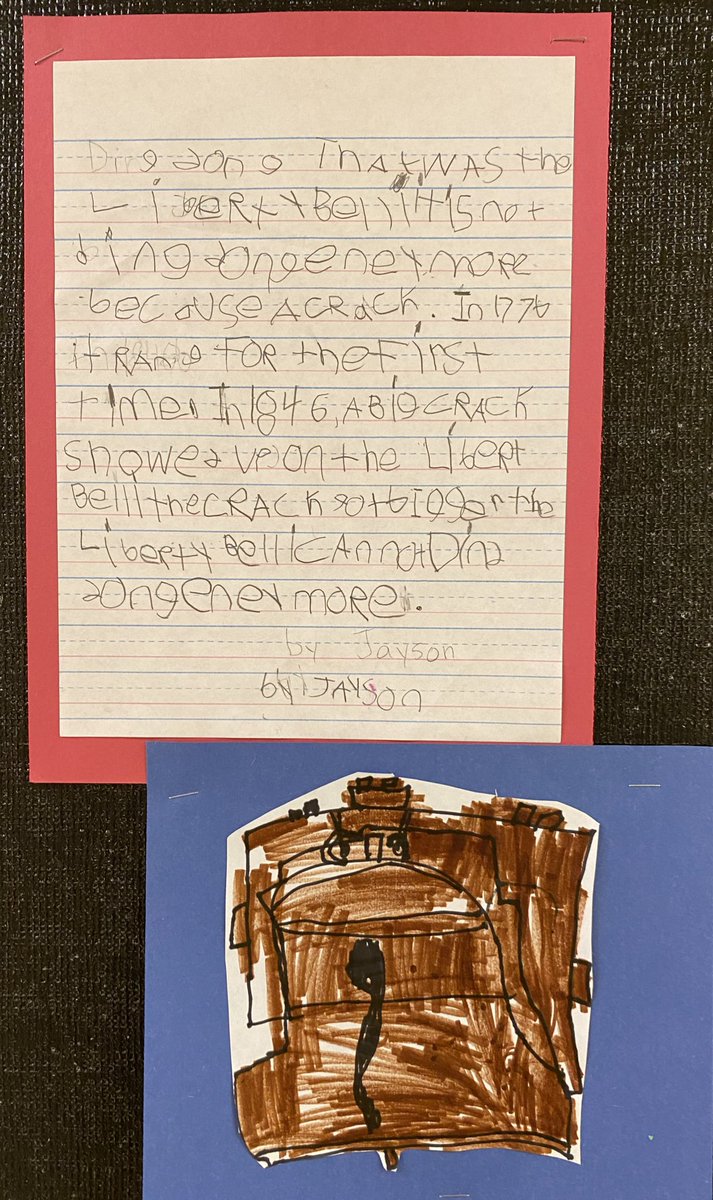 Ding dong That WAS the
LibeRty Bell! It IS not
ding dong eneymore
because A CRaCK. In 1776
it RANG FOR the First
time. In 1846, A BIG CRACK
showed up on the Libert
Bell! the CRACK got bigger the
Liberty Bell CAn not Ding
dong eneymore.
by Jayson
by JAYSon